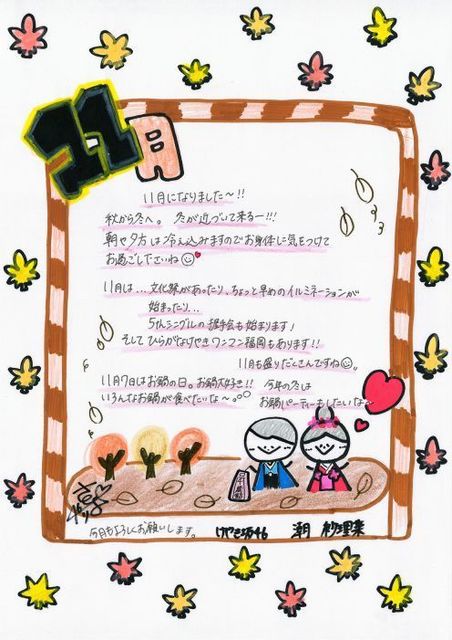 11月
11月になりました〜!!
秋から冬へ。冬が近づいて来るー!!!
朝や夕方は冷え込みますのでお身体に気をつけて
お過ごしくださいね
11月は...文化祭があったり、ちょっと早めのイルミネーションが
始まったり...
5thシングルの握手会も始まります!
そして ひらがなけやきワンマン福岡もあります!!
11月も盛りだくさんですね。
11月7日はお鍋の日。お鍋大好き!! 今年の冬は
いろんなお鍋が食べたいな〜。 お鍋パーティーもしたいな
今月もよろしくお願いします。 けやき坂46 潮 紗理菜